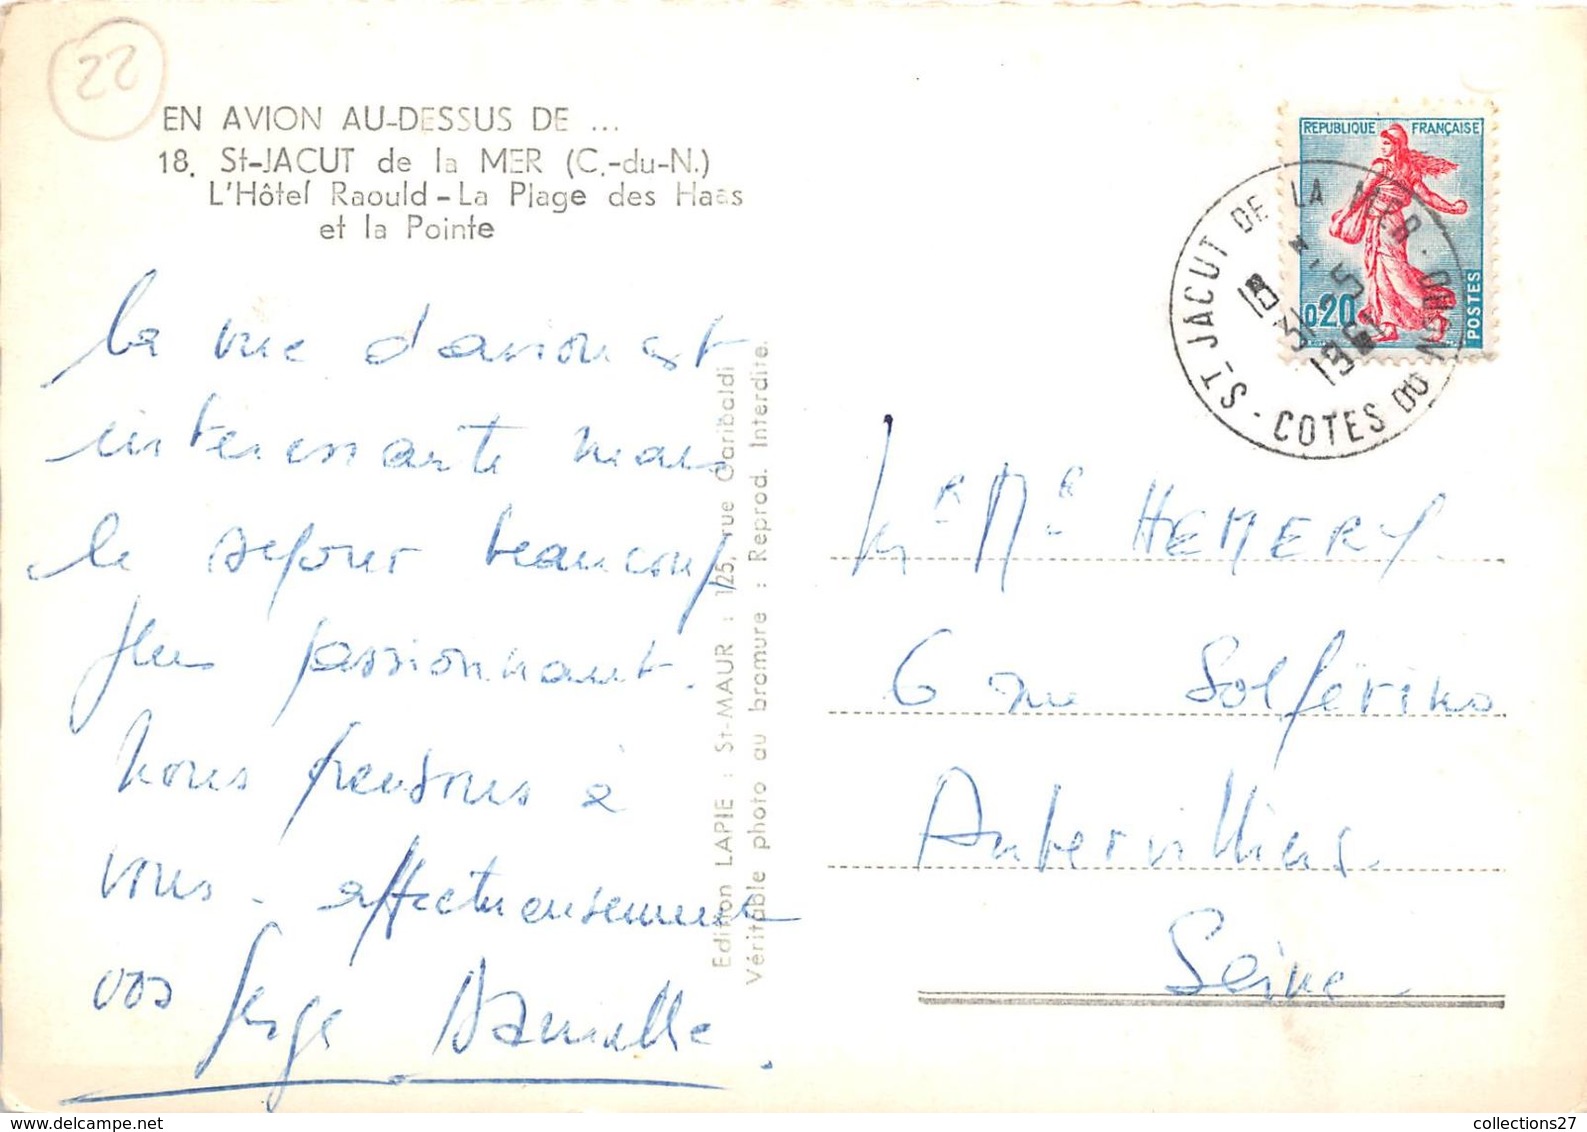 22
EN AVION AU-DESSUS DE ...
18. St-JACUT de la MER (C.-du-N.)
L'Hôtel Raould - La Plage des Haas
et la Pointe
la vue d'avion est
interessante mais
le sejour beaucoup
plus passionnant.
Nous pensons à
vous. affectueusement
vos Serge Danielle.
Edition LAPIE : St-MAUR : 125, rue Garibaldi
Véritable photo au bromure : Reprod. Interdite.
REPUBLIQUE FRANÇAISE
0,20
POSTES
ST JACUT DE LA MER . COTES DU NORD
18 H
31-5
1961
Mr Me HEMERY
6 rue Solférino
Aubervilliers
Seine
collections27